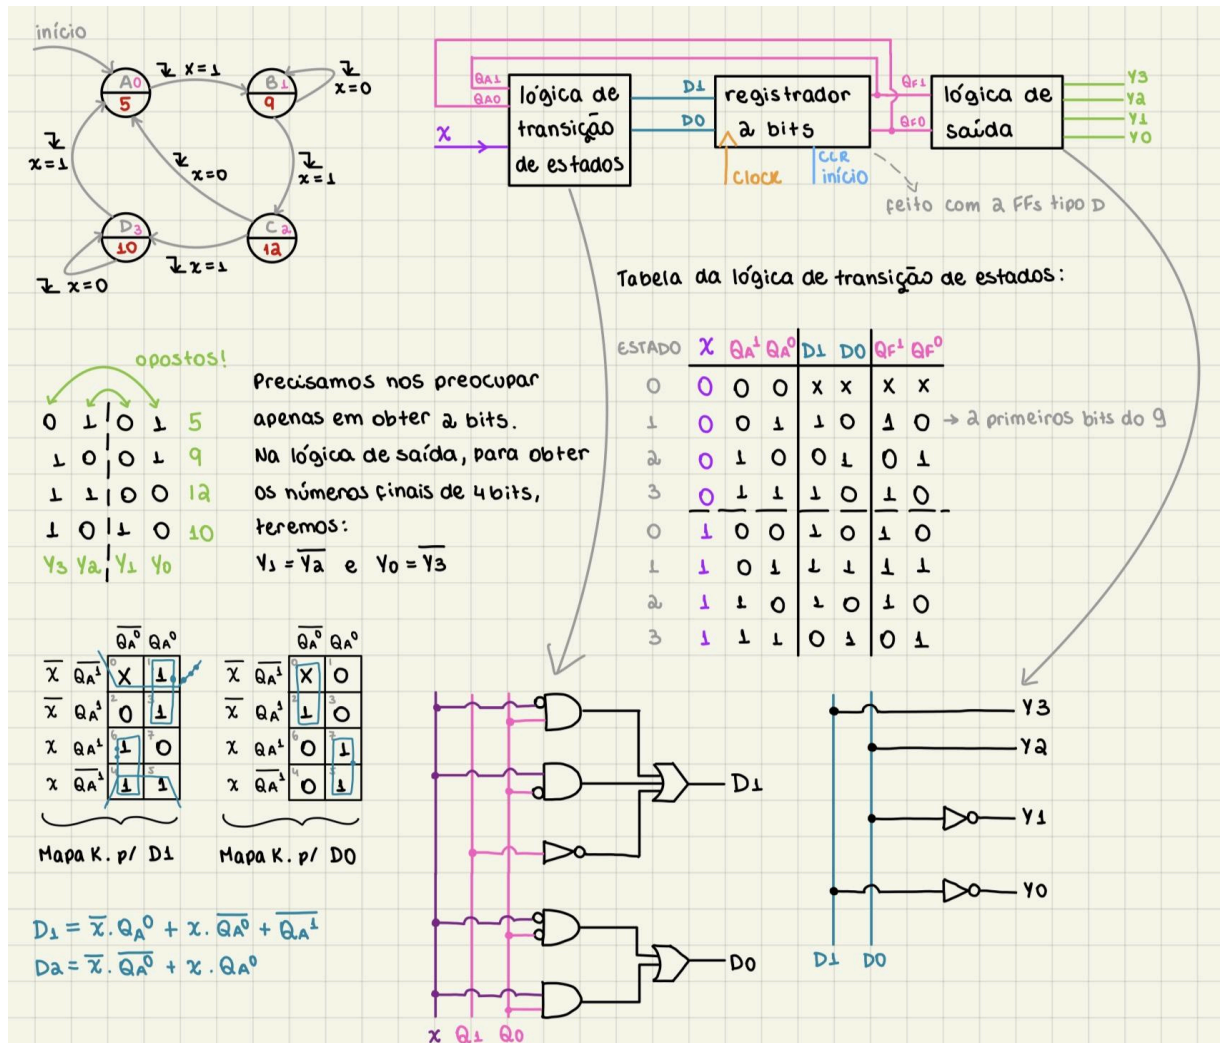 início
A0
5
x=1
B1
9
x=0
x=1
x=0
x=1
D3
10
C2
12
x=1
x=0
QA1
QA0
X
lógica de
transição
de estados
D1
D0
registrador
2 bits
CLOCK
CLR
início
QF1
QF0
lógica de
saída
Y3
Y2
Y1
Y0
feito com 2 FFs tipo D
Tabela da lógica de transição de estados:
ESTADO X QA¹ QA⁰ D1 D0 QF¹ QF⁰
0 0 0 0 X X X X
1 0 0 1 1 0 1 0 → 2 primeiros bits do 9
2 0 1 0 0 1 0 1
3 0 1 1 1 0 1 0
0 1 0 0 1 0 1 0
1 1 0 1 1 1 1 1
2 1 1 0 1 0 1 0
3 1 1 1 0 1 0 1
opostos!
0 1 0 1 5
1 0 0 1 9
1 1 0 0 12
1 0 1 0 10
Y3 Y2 Y1 Y0
Precisamos nos preocupar
apenas em obter 2 bits.
Na lógica de saída, para obter
os números finais de 4 bits,
teremos:
Y1 = Y̅2̅ e Y0 = Y̅3̅
Q̅A̅⁰ QA⁰
x̅ Q̅A̅¹ 0 X 1 1
x̅ QA¹ 2 0 3 1
x QA¹ 6 1 7 0
x Q̅A̅¹ 4 1 5 1
Mapa K. p/ D1
Q̅A̅⁰ QA⁰
x̅ Q̅A̅¹ 0 X 1 0
x̅ QA¹ 2 1 3 0
x QA¹ 6 0 7 1
x Q̅A̅¹ 4 0 5 1
Mapa K. p/ D0
D1 = x̅.QA⁰ + x.Q̅A̅⁰ + Q̅A̅¹
D2 = x̅.Q̅A̅⁰ + x.QA⁰
D1
D0
X Q1 Q0
Y3
Y2
Y1
Y0
D1 D0